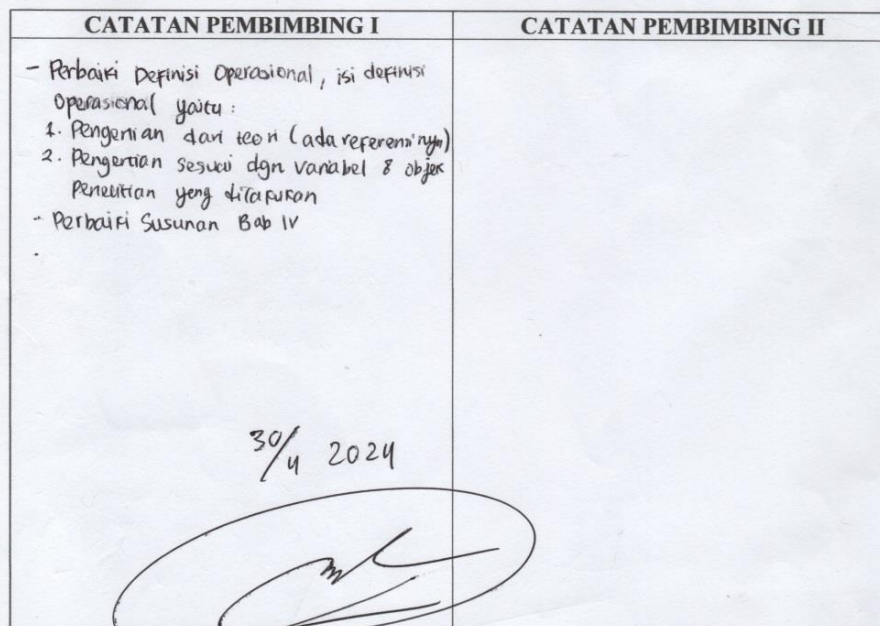 CATATAN PEMBIMBING I
CATATAN PEMBIMBING II
- Perbaiki Definisi Operasional, isi definisi
Operasional yaitu :
1. Pengertian dari teori (ada referensinya)
2. Pengertian sesuai dgn variabel & objek
Penelitian yang dilakukan
- Perbaiki Susunan Bab IV
-
30/4 2024